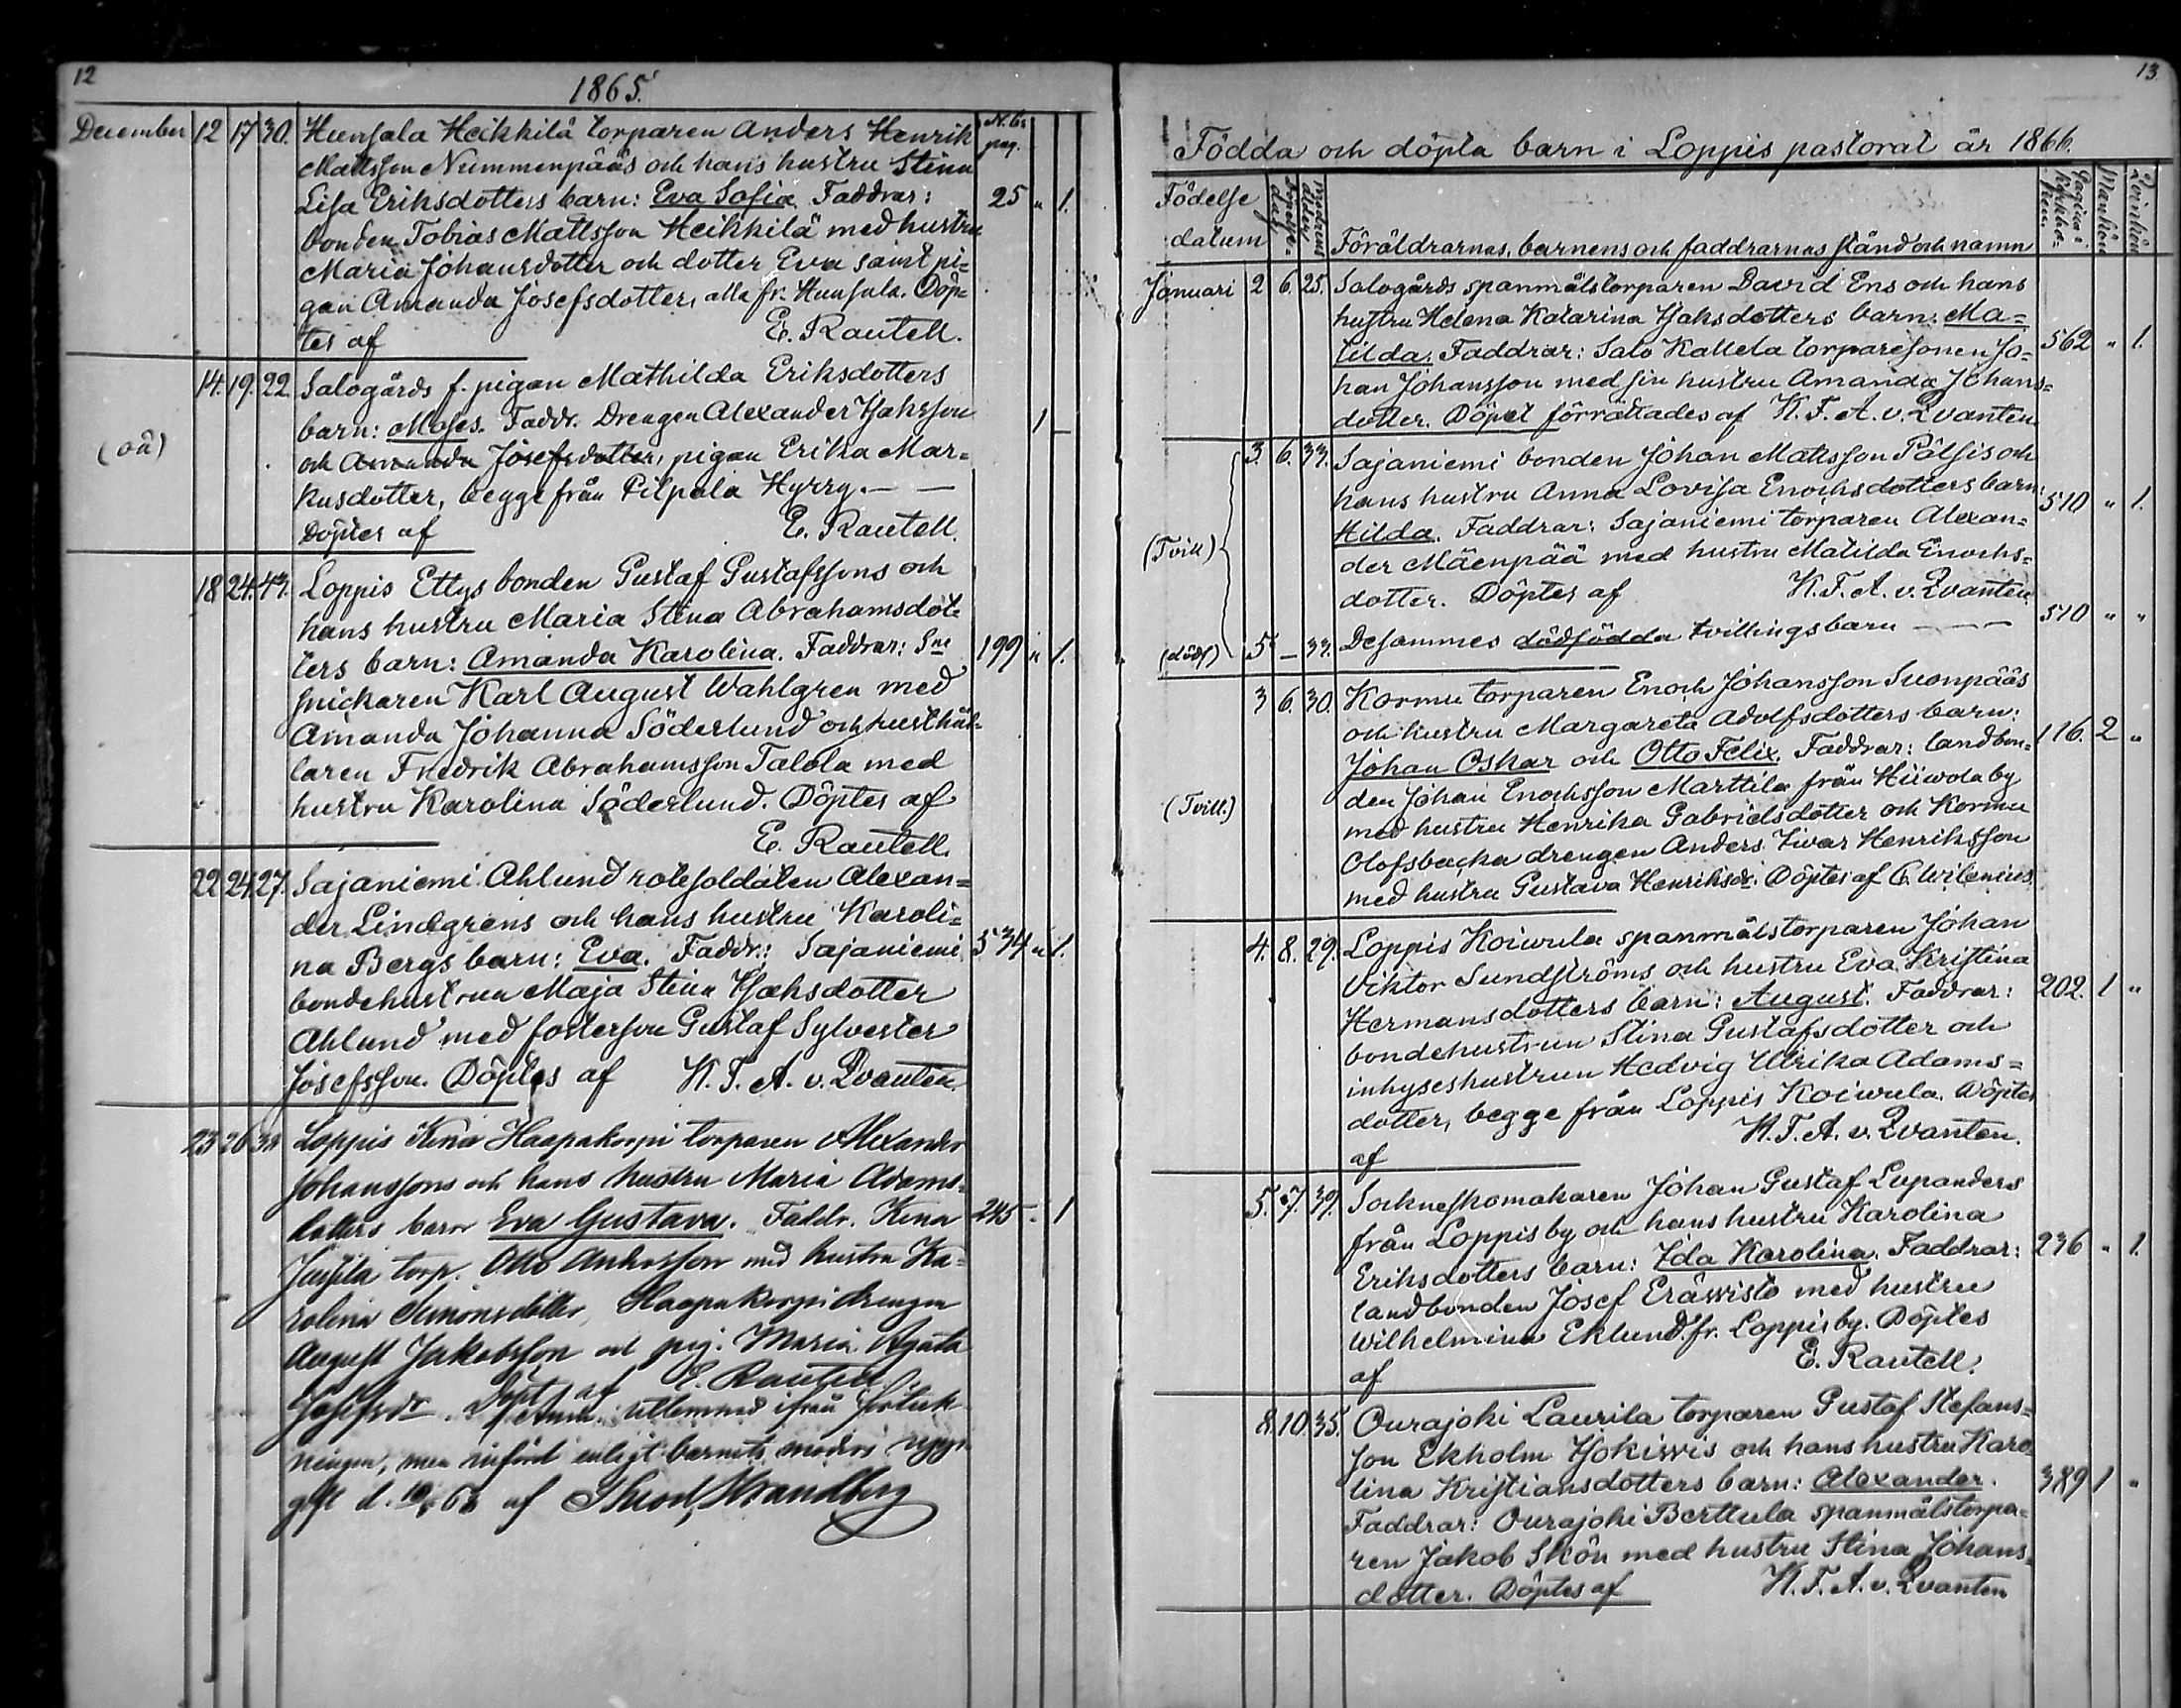 12
1865.
December 12 17 30. Hunsala Heikkilä torparen Anders Henrik N. K. pag.
Mattsson Nummenpääs och hans hustru Stina
Lisa Eriksdotters barn: Eva Sofia. Faddrar: 25 " 1.
bonden Tobias Mattsson Heikkilä med hustru
Maria Johansdotter och dotter Eva samt pi=
gan Amanda Josefsdotter, alla fr. Hunsala. Döp=
tes af E. Rautell.
14. 19. 22 Salogårds f. pigan Mathilda Eriksdotters
barn: Moses. Faddr. Drengen Alexander Isaksson 1 —
(oä) och Amanda Josefsdotter, pigan Erika Mar=
kusdotter, begge från Pilpala Hyrry. — —
Döptes af E. Rautell.
18 24. 43. Loppis Ettys bonden Gustaf Gustafssons och
hans hustru Maria Stina Abrahamsdot=
ters barn: Amanda Karolina. Faddrar: Sne 199 " 1.
snickaren Karl August Wahlgren med
Amanda Johanna Söderlund och hushål=
laren Fredrik Abrahamsson Talola med
hustru Karolina Söderlund. Döptes af
E. Rautell.
22 24. 27. Sajaniemi Ahlund rotesoldaten Alexan=
der Lindgrens och hans hustru Karoli=
na Bergs barn: Eva. Faddr.: Sajaniemi 534 " 1.
bondehustrun Maja Stina Isaksdotter
Ahlund med fosterson Gustaf Sylvester
Josefsson. Döptes af K. F. A. v. Qvanten.
23 26 Loppis Kena Haapakorpi torparen Alexander
Johanssons och hans hustru Maria Adams=
dotters barn Eva Gustava. Faddr. Kena 245 " 1
Jussila torp. Otto Andersson med hustru Ka=
rolina Simonsdotter, Haapakorpi drengen
August Jakobsson och pig. Maria Agata
Josefsdr. Döpt af E. Rautell.
utlemnad ifrån förteck=
ningen, men införd enligt barnets moders uppgift
d. 10/ 68 af Theod. Strandberg
13.
Födda och döpta barn i Loppis pastorat år 1866.
Födelse datum Döpelse dag Modrens ålder Föräldrarnas, barnens och faddrarnas stånd och namn Pagina i kyrkobo-ken. Mankön Qvinkön
Januari 2 6. 25. Salogårds spanmålstorparen David Ens och hans
hustru Helena Katarina Isaksdotters barn: Ma=
tilda. Faddrar: Salo Kallela torparesonen Jo= 562 " 1.
han Johansson med sin hustru Amanda Johans=
dotter. Döpet förrättades af K. F. A. v. Qvanten.
3. 6. 33. Sajaniemi bonden Johan Mattsson Pälsis och
hans hustru Anna Lovisa Enochsdotters barn: 510 " 1.
Hilda. Faddrar: Sajaniemi torparen Alexan=
(Tvill) der Mäenpää med hustru Matilda Enochs=
dotter. Döptes af K. F. A. v. Qvanten.
(dödf) 5 — 33. Desammes dödfödda tvillingsbarn — — — 510 " "
3 6. 30. Kormu torparen Enoch Johansson Suonpääs
och hustru Margareta Adolfsdotters barn:
Johan Oskar och Otto Felix. Faddrar: landbon= 116. 2 "
den Johan Enochsson Marttila från Hiiwola by
(Tvill.) med hustru Henrika Gabrielsdotter och Kormu
Olofsbacka drengen Anders Ivar Henriksson
med hustru Gustava Henriksdr. Döptes af C. Wilenius.
4. 8. 29. Loppis Koiwula spanmålstorparen Johan
Viktor Sundströms och hustru Eva Kristina
Hermansdotters barn: August. Faddrar: 202. 1 "
bondehustrun Stina Gustafsdotter och
inhyseshustrun Hedvig Ulrika Adams=
dotter, begge från Loppis Koiwula. Döptes
af K. F. A. v. Qvanten.
5. 7. 39. Sockneskomakaren Johan Gustaf Lupanders
från Loppis by och hans hustru Karolina
Eriksdotters barn: Ida Karolina. Faddrar: 236 " 1.
landbonden Josef Eräwisto med hustru
Wilhelmina Eklund fr. Loppis by. Döptes
af E. Rautell.
8. 10. 35. Ourajoki Laurila torparen Gustaf Stefans=
son Ekholm Isokiwis och hans hustru Karo=
lina Kristiansdotters barn: Alexander. 389 1 "
Faddrar: Ourajoki Berttula spanmålstorpa=
ren Jakob Skön med hustru Stina Johans=
dotter. Döptes af K. F. A. v. Qvanten